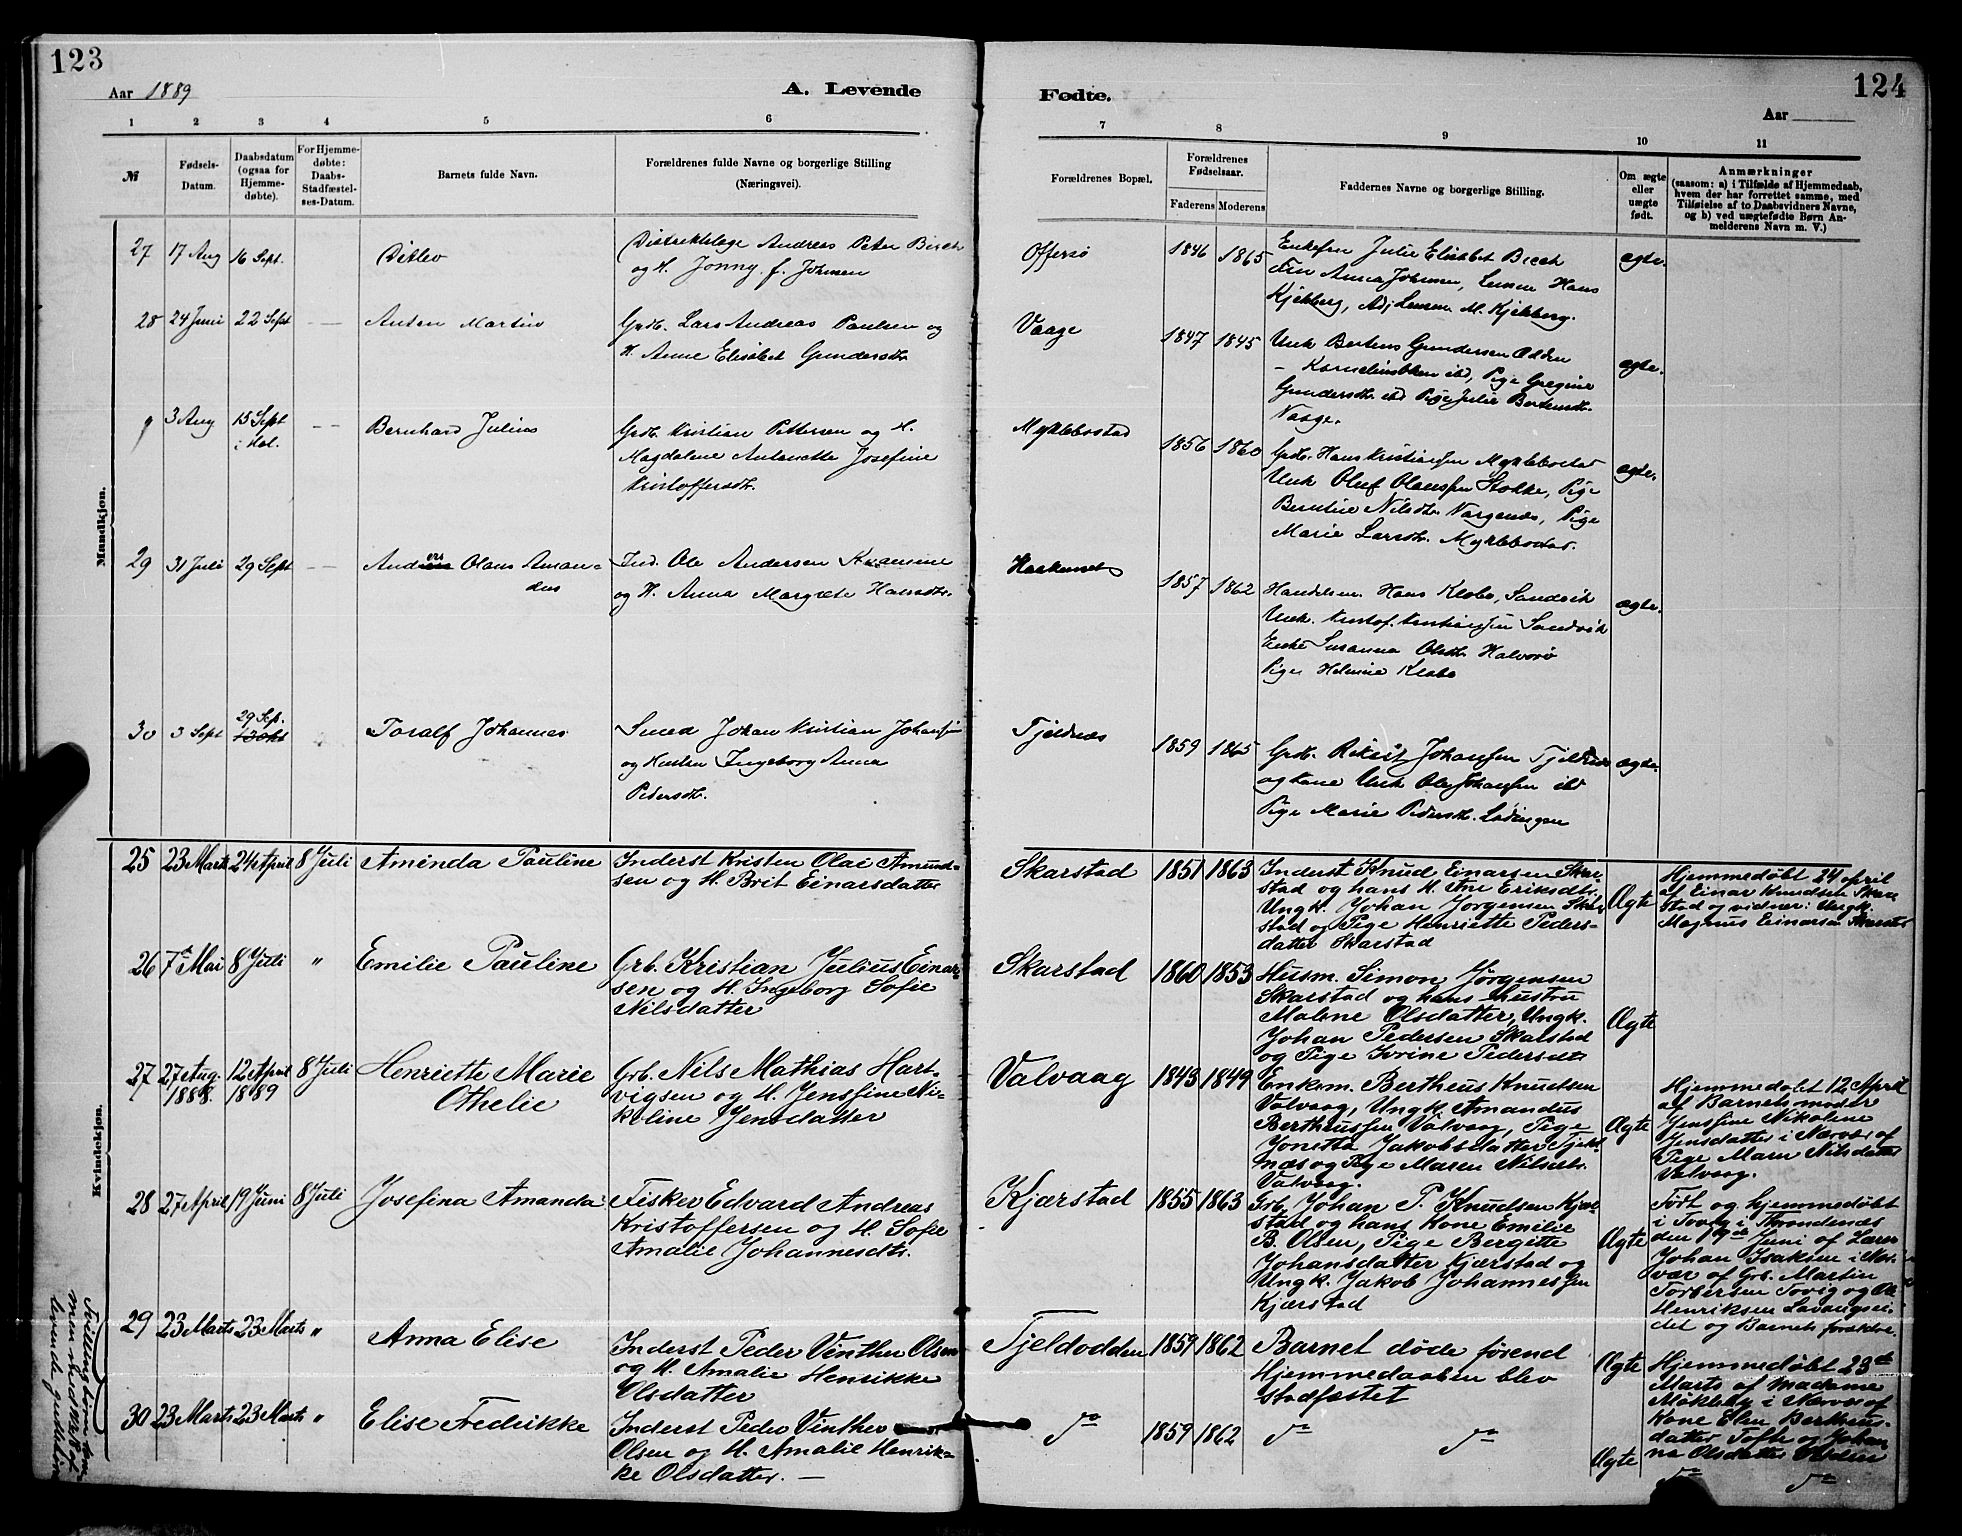 123
Aar 1889
A. Levende
1 2 3 4 5 6
№
Fødsels-
Datum.
Daabsdatum
(ogsaa for
Hjemme-
døbte).
For Hjemme-
døbte:
Daabs-
Stadfæstel-
ses-Datum.
Barnets fulde Navn.
Forældrenes fulde Navne og borgerlige Stilling
(Næringsvei).
Mandkjøn.
27 17 Aug 16 Sept. Ditlev
Distriktslæge Andreas Peter Birch
og H. Jonny f. Johnsen
28 24 Juni 22 Sept — — Anton Martin
Grdb. Lars Andreas Paulsen og
H. Anne Elisabet Gundersdtr.
3 Aug 15 Sept — — Bernhard Julius
Grdb. Kristian Pettersen og H.
Magdalene Antonette Josefine
Kristoffersdtr.
29 31 Juli 29 Sept — — Anders Olaus Aman-
dus
Ind. Ole Andersen
og H. Anna Margrete Hansdtr.
30 3 Sept 29 Sep. Toralf Johannes
Smed Johan Kristian Johansen
og Hustru Ingeborg Anna
Pedersdtr.
Kvindekjøn.
25 23 Marts 24 April 8 Juli Aminda Pauline
Inderst Kristen Olai Amund-
sen og H. Brit Einarsdatter
26 7 Mai 8 Juli " Emilie Pauline
Grb. Kristian Julius Einar-
sen og H. Ingeborg Sofie
Nilsdatter
27 27 Aug. 1888. 12 April 1889 8 Juli Henriette Marie
Othelie
Grb. Nils Mathias Hart-
vigsen og H. Jensfine Ni-
koline Jensdatter
28 27 April 19 Juni 8 Juli Josefina Amanda
Fisker Edvard Andreas
Kristoffersen og H. Sofie
Amalie Johannesdtr.
29 23 Marts 23 Marts " Anna Elise
Inderst Peder Vinther Olsen
og H. Amalie Henrikke
Olsdatter
30 23 Marts 23 Marts " Elise Fredrikke
Inderst Peder Vinther
Olsen og H. Amalie Henrik-
ke Olsdatter. —
124
Fødte.
Aar
7 8 9 10 11
Forældrenes Bopæl.
Forældrenes
Fødselsaar.
Faderens Moderens
Faddernes Navne og borgerlige Stilling.
Om ægte
eller
uægte
født.
Anmærkninger
(saasom: a) i Tilfælde af Hjemmedaab,
hvem der har forrettet samme, med
Tilføielse af to Daabsvidners Navne,
og b) ved uægtefødte Børn An-
melderens Navn m. V.)
Offersø 1846 1865
Enkefru Julie Elisabet Birch
Frk Anna Johnsen, Lensm Hans
Kjekberg, Adj Lensm. M. Kjekberg.
ægte.
Vaage 1847 1845
Unk Bertens Gundersen Odden
ibd, Pige Gregine
Gundersdtr. ibd Pige Julie Bertensdtr.
Vaage.
ægte.
Myklebostad 1856 1860
Grdb. Hans Kristiansen Myklebostad
Unk Oluf Olaussen Stokke, Pige
Berntine Nilsdtr. Vargenes, Pige
Marie Larsdtr. Myklebostad.
ægte.
1857 1862
Handelsm. Hans Klæbo, Sandvik
Unk. Kristof. Kristiansen Sandvik
Enke Susanna Olsdtr. Halvorø
Pige Helmine Klæbo
ægte.
Tjeldnæs 1859 1865
Grdb. Rikert Johansen Tjeldnæs
og kone Unk Ole Johansen ibd
Pige Marie Pedersdtr. Lødingen
ægte.
Skarstad 1851 1863
Inderst Knud Einarsen Skar-
stad og hans H. Ane Eriksdtr.
Ungk. Johan Jørgensen Skar-
stad og Pige Henriette Peders-
datter Skarstad
Ægte
Hjemmedøbt 24 april
af Einar Knudsen Skar-
stad og vidner: Ungk.
Magnus Einarsen Skarstad
Skarstad 1860 1853
Husm. Simon Jørgensen
Skarstad og hans hustru
Malene Olsdatter, Ungk.
Johan Pedersen Skarstad
og Pige Ivrine Pedersdtr.
Ægte
Valvaag 1843 1849
Enkem. Bertheus Knudsen
Valvaag, Ungk. Amandus
Bertheussen Valvaag, Pige
Jonetta Jakobsdatter Tjeld-
næs og Pige Maren Nilsdtr.
Valvaag.
Ægte
Hjemmedøbt 12 April
af Barnets moder
Jensfine Nikoline
Jensdatter i Nærvær af
Pige Maren Nilsdatter
Valvaag.
Kjærstad 1855 1863
Grb. Johan P. Knudsen Kjær-
stad og hans Kone Emilie
B. Olsen, Pige Bergitte
Johansdatter Kjærstad og
Ungk. Jakob Johannessen
Kjærstad
Ægte
Født og hjemmedøbt
i Tovig i Trondenæs
den 19de Juni af Lærer
Johan Isaksen i Nær-
vær af Grb. Martin
Torbersen Tovig og Ole
Henriksen Lavangsei-
det og Barnets forældre.
Tjeldodden 1859 1862
Barnet døde førend
Hjemmedaaben blev
stadfæstet
Ægte
Hjemmedøbt 23de
Marts af Madame
Møkleby i Nærvær af
Kone Elen Bertheus-
datter Tofte og Johan-
na Olsdatter Olsden
do 1859 1862 do do
Ægte
do do